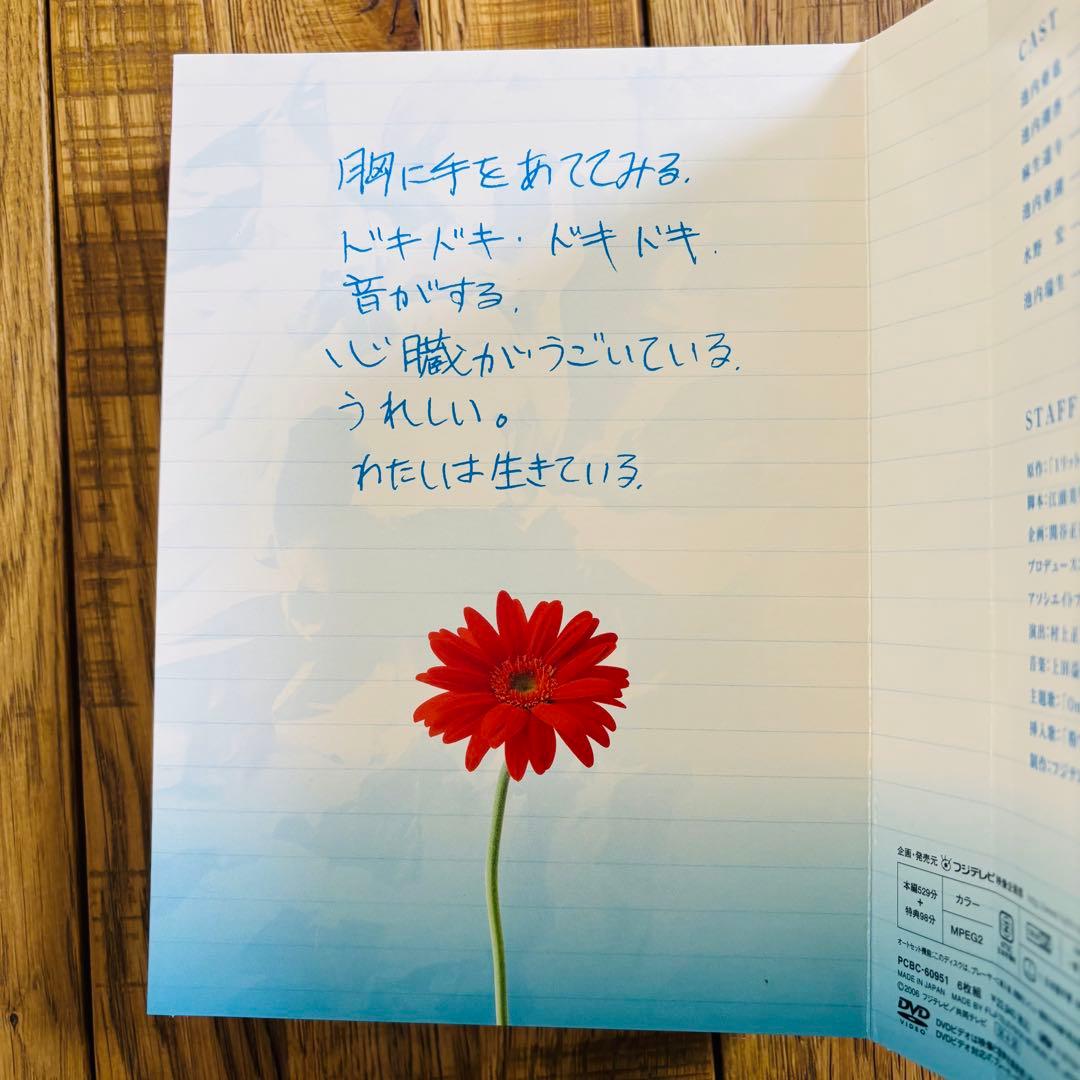 胸に手をあててみる.
ドキドキ・ドキドキ.
音がする.
心臓がうごいている.
うれしい。
わたしは生きている.
CAST
池内亜也
池内潮香
麻生遥斗
池内亜湖
水野 宏
池内瑞生
STAFF
原作:「1リット
脚本:江頭美
企画:関谷正
プロデュース:
アソシエイトプ
演出:村上正
音楽:上田益
主題歌:「On
挿入歌:「粉
制作:フジテ
企画・発売元 フジテレビ映像企画部
本編529分
+
特典98分
カラー
MPEG2
オートセット機能:このディスクは、プレーヤー
PCBC-60951 6枚組
MADE IN JAPAN MADE BY
©2006 フジテレビ/共同テレビ
DVD
VIDEO
DVDビデオは映像
DVDビデオ対応の